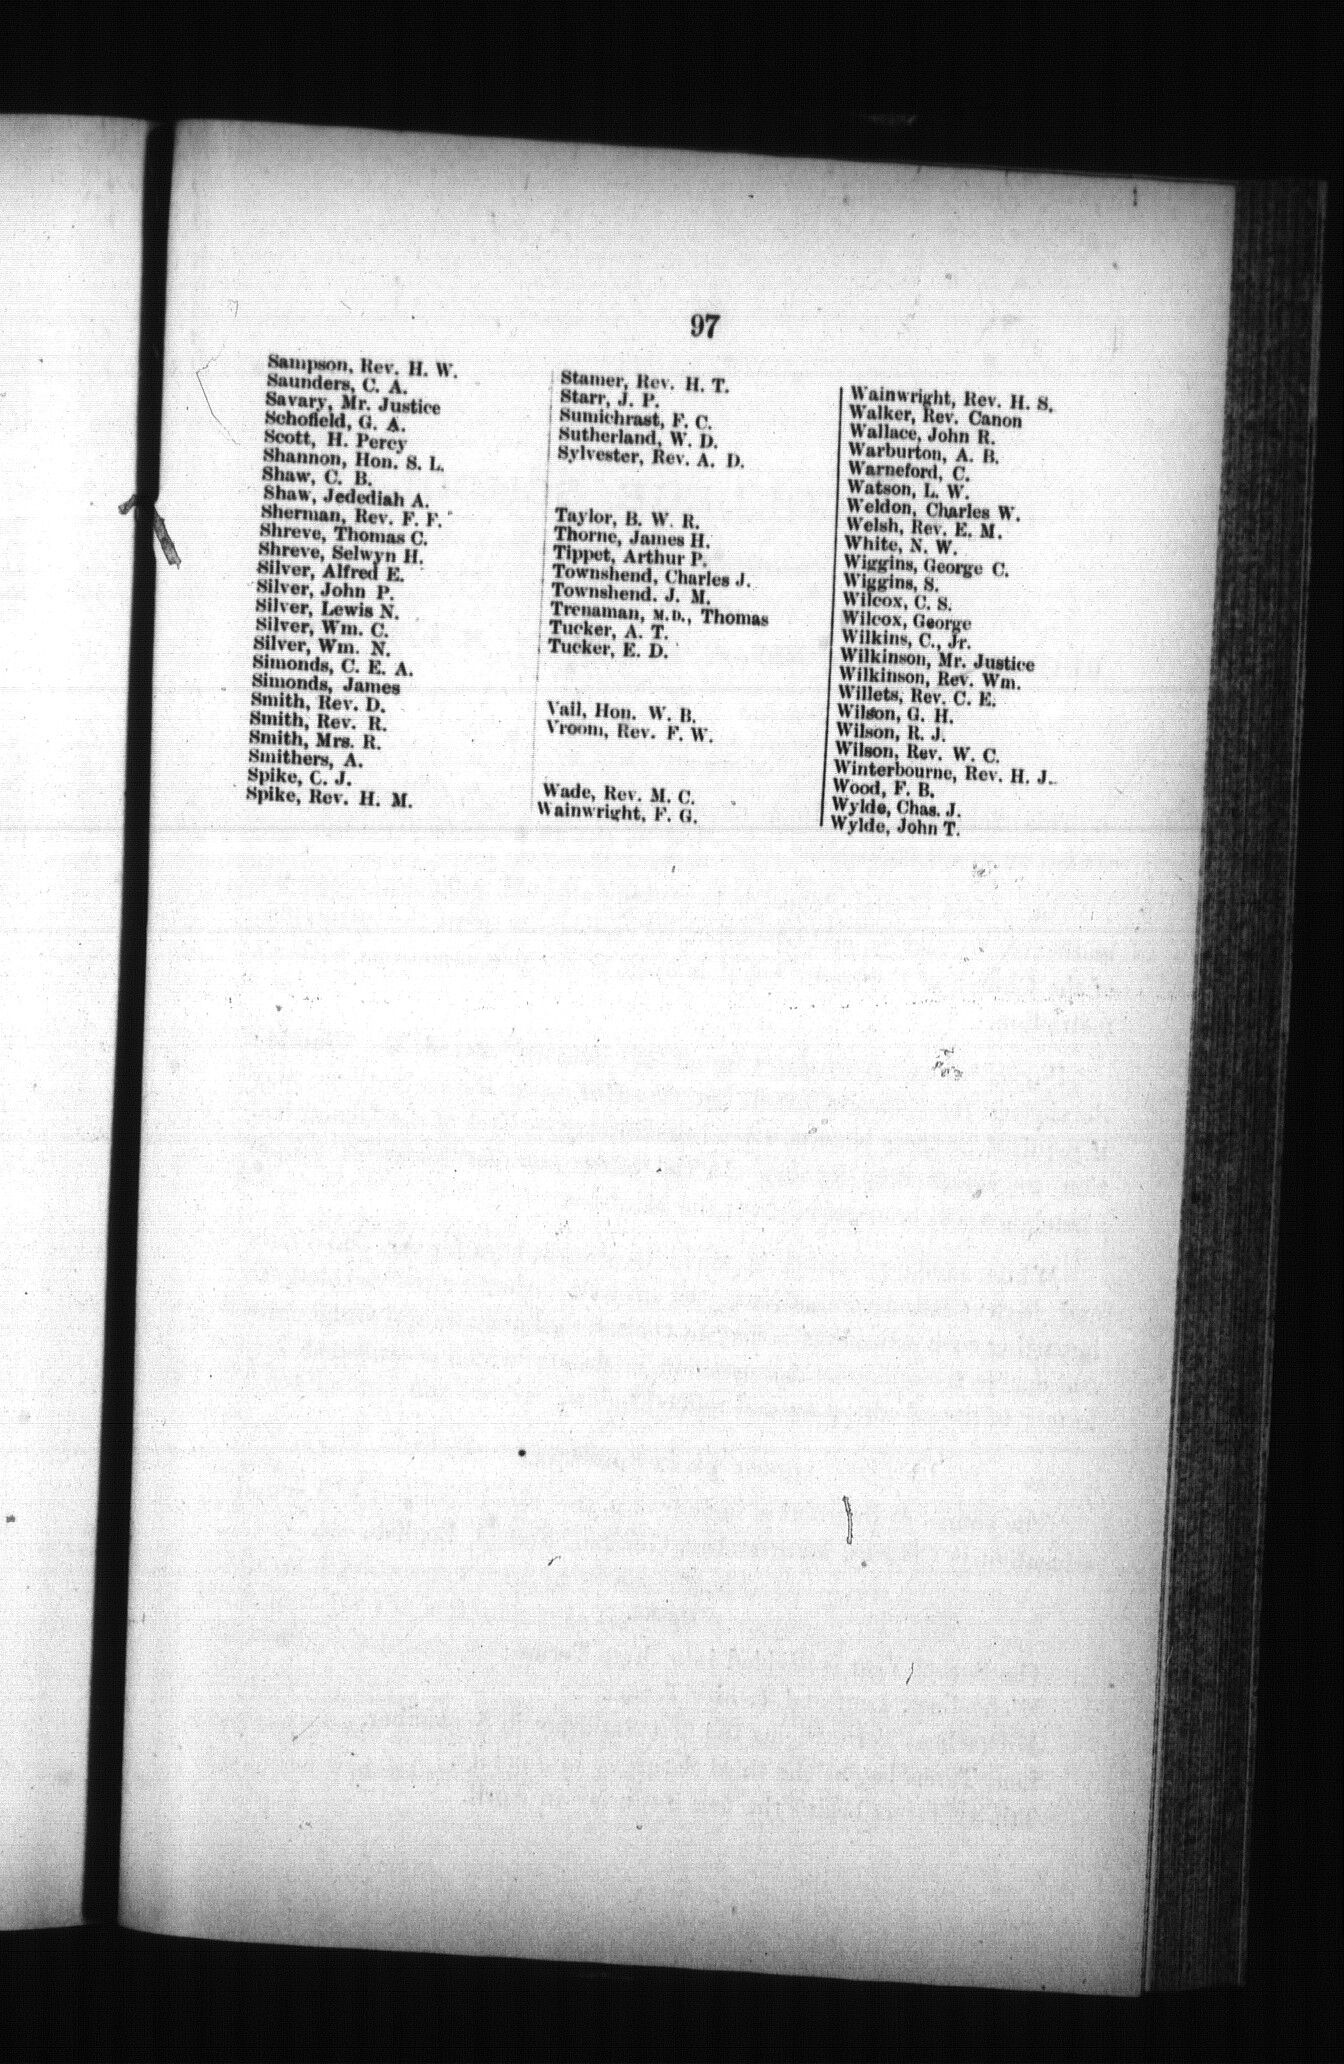 97
Sampson, Rev. H. W.
Saunders, C. A.
Savary, Mr. Justice
Schofield, G. A.
Scott, H. Percy
Shannon, Hon. S. L.
Shaw, C. B.
Shaw, Jedediah A.
Sherman, Rev. F. F.
Shreve, Thomas C.
Shreve, Selwyn H.
Silver, Alfred E.
Silver, John P.
Silver, Lewis N.
Silver, Wm. C.
Silver, Wm. N.
Simonds, C. E. A.
Simonds, James
Smith, Rev. D.
Smith, Rev. R.
Smith, Mrs. R.
Smithers, A.
Spike, C. J.
Spike, Rev. H. M.
Stamer, Rev. H. T.
Starr, J. P.
Sumichrast, F. C.
Sutherland, W. D.
Sylvester, Rev. A. D.
Taylor, B. W. R.
Thorne, James H.
Tippet, Arthur P.
Townshend, Charles J.
Townshend. J. M.
Trenaman, M.D., Thomas
Tucker, A. T.
Tucker, E. D.
Vail, Hon. W. B.
Vroom, Rev. F. W.
Wade, Rev. M. C.
Wainwright, F. G.
Wainwright, Rev. H. S.
Walker, Rev. Canon
Wallace, John R.
Warburton, A. B.
Warneford, C.
Watson, L. W.
Weldon, Charles W.
Welsh, Rev. E. M.
White, N. W.
Wiggins, George C.
Wiggins, S.
Wilcox, C. S.
Wilcox, George
Wilkins, C., Jr.
Wilkinson, Mr. Justice
Wilkinson, Rev. Wm.
Willets, Rev. C. E.
Wilson, G. H.
Wilson, R. J.
Wilson, Rev. W. C.
Winterbourne, Rev. H. J.
Wood, F. B.
Wylde, Chas. J.
Wylde, John T.